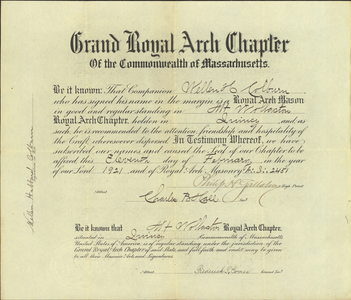 Grand Royal Arch Chapter
Of the Commonwealth of Massachusetts.
Be it known: That Companion Willard H Colburn
who has signed his name in the margin is a Royal Arch Mason
in good and regular standing in Mt Wollaston
Royal Arch Chapter, holden in Quincy and as
such, he is recommended to the attention, friendship and hospitality of
the Craft wheresoever dispersed. In Testimony Whereof, we have
subscribed our names and caused the Seal of our Chapter to be
affixed this Eleventh day of February in the year
of our Lord 1921 and of Royal Arch Masonry A.I. 2451
High Priest
Charles B
Sec'y
Be it known that Mt Wollaston Royal Arch Chapter,
situated in Quincy Commonwealth of Massachusetts,
United States of America, is of regular standing under the jurisdiction of the
Grand Royal Arch Chapter of said State, and full faith and credit may be given
to all their Masonic Acts and Signatures.
Attest
Frederick
Willard H Colburn